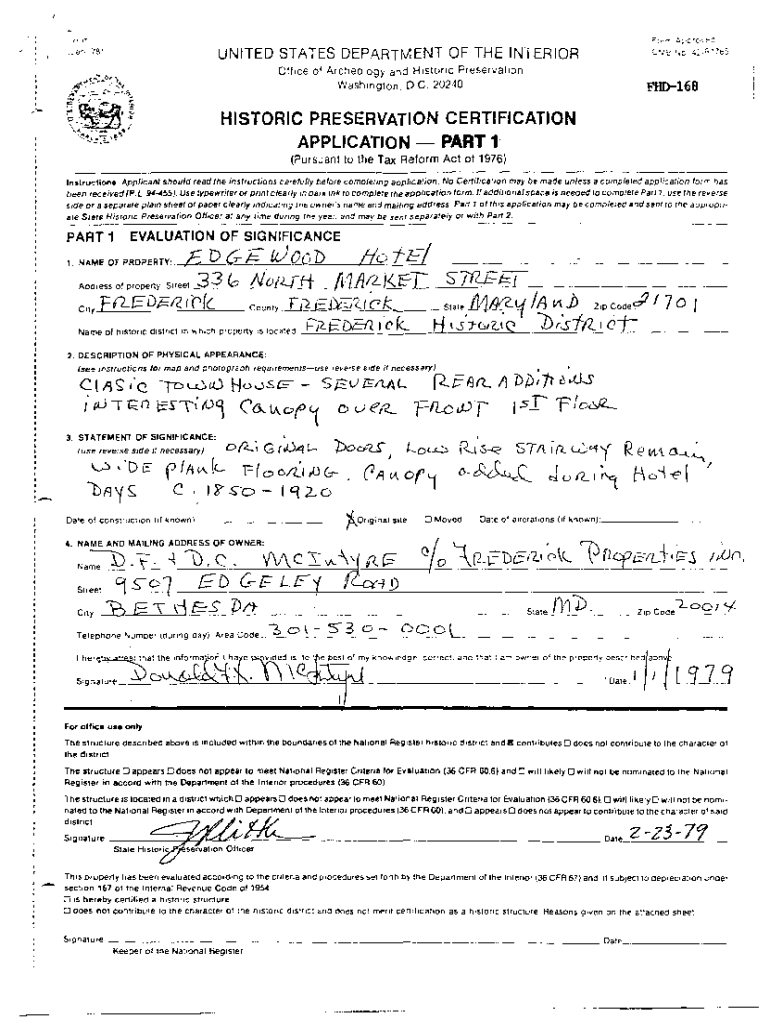 UNITED STATES DEPARTMENT OF THE INTERIOR
Office of Archeology and Historic Preservation
Washington, D.C. 20240
Form Approved
OMB No. 42-R1765
FHD-168
HISTORIC PRESERVATION CERTIFICATION
APPLICATION — PART 1
(Pursuant to the Tax Reform Act of 1976)
Instructions: Applicant should read the instructions carefully before completing application. No Certification may be made unless a completed application form has
been received (P.L. 94-455). Use typewriter or print clearly in dark ink to complete the application form. If additional space is needed to complete Part 1, use the reverse
side or a separate plain sheet of paper clearly indicating the owner's name and mailing address. Part 1 of this application may be completed and sent to the appropri-
ate State Historic Preservation Officer at any time during the year, and may be sent separately or with Part 2.
PART 1 EVALUATION OF SIGNIFICANCE
1. NAME OF PROPERTY: EDGEWOOD HOTEL
Address of property: Street 336 NORTH MARKET STREET
City FREDERICK County FREDERICK State MARYLAND Zip Code 21701
Name of historic district in which property is located: FREDERICK HISTORIC DISTRICT
2. DESCRIPTION OF PHYSICAL APPEARANCE:
(see instructions for map and photograph requirements—use reverse side if necessary)
CLASIC TOWN HOUSE - SEVERAL REAR ADDITIONS
INTERESTING CANOPY OVER FRONT 1ST FLOOR
3. STATEMENT OF SIGNIFICANCE:
(use reverse side if necessary) ORIGINAL DOORS, LOW RISE STAIRWAY Remain,
WIDE PLANK FLOORING. CANOPY added during Hotel
DAYS C. 1850-1920
Date of construction (if known): X Original site ☐ Moved Date of alterations (if known):
4. NAME AND MAILING ADDRESS OF OWNER:
Name D.F. + D.C. MCINTYRE c/o FREDERICK PROPERTIES
Street 9507 EDGELEY ROAD
City BETHESDA State MD. Zip Code 20014
Telephone Number (during day): Area Code 301-530-0001
I hereby attest that the information I have provided is, to the best of my knowledge, correct, and that I am owner of the property described above.
Signature Donald F. McIntyre Date 1/1/1979
For office use only
The structure described above is included within the boundaries of the National Register historic district and ☒ contributes ☐ does not contribute to the character of
the district.
The structure ☐ appears ☐ does not appear to meet National Register Criteria for Evaluation (36 CFR 60.6) and ☐ will likely ☐ will not be nominated to the National
Register in accord with the Department of the Interior procedures (36 CFR 60).
The structure is located in a district which ☐ appears ☐ does not appear to meet National Register Criteria for Evaluation (36 CFR 60.6), ☐ will likely ☐ will not be nomi-
nated to the National Register in accord with Department of the Interior procedures (36 CFR 60), and ☐ appears ☐ does not appear to contribute to the character of said
district.
Signature Date 2-23-79
State Historic Preservation Officer
This property has been evaluated according to the criteria and procedures set forth by the Department of the Interior (36 CFR 67) and, if subject to depreciation under
section 167 of the Internal Revenue Code of 1954
☐ is hereby certified a historic structure.
☐ does not contribute to the character of the historic district and does not merit certification as a historic structure. Reasons given on the attached sheet.
Signature Date
Keeper of the National Register